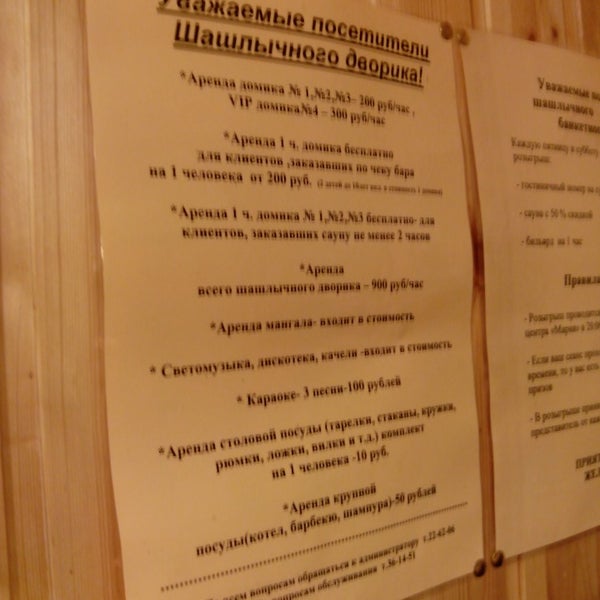 Уважаемые посетители
Шашлычного дворика!
*Аренда домика № 1,№2,№3– 200 руб/час ,
VIP домика№4 – 300 руб/час
*Аренда 1 ч. домика бесплатно
для клиентов ,заказавших по чеку бара
на 1 человека от 200 руб.
*Аренда 1 ч. домика № 1,№2,№3 бесплатно- для
клиентов, заказавших сауну не менее 2 часов
*Аренда
всего шашлычного дворика – 900 руб/час
*Аренда мангала- входит в стоимость
* Светомузыка, дискотека, качели -входит в стоимость
* Караоке- 3 песни-100 рублей
*Аренда столовой посуды (тарелки, стаканы, кружки,
рюмки, ложки, вилки и т.д.) комплект
на 1 человека -10 руб.
*Аренда крупной
посуды(котел, барбекю, шампура)-50 рублей
всем вопросам обращаться к администратору т.22-62-06
вопросам обслуживания т.36-14-51
Уважаемые
шашлычного
Каждую пятницу и субботу
розыгрыш:
- гостиничный номер на
- сауна с 50 % скидкой
- бильярд на 1 час
Правила
- Розыгрыш проводится
центра «Мария» в
- Если ваш
времени, то у вас есть
призов
- В розыгрыше
представитель от